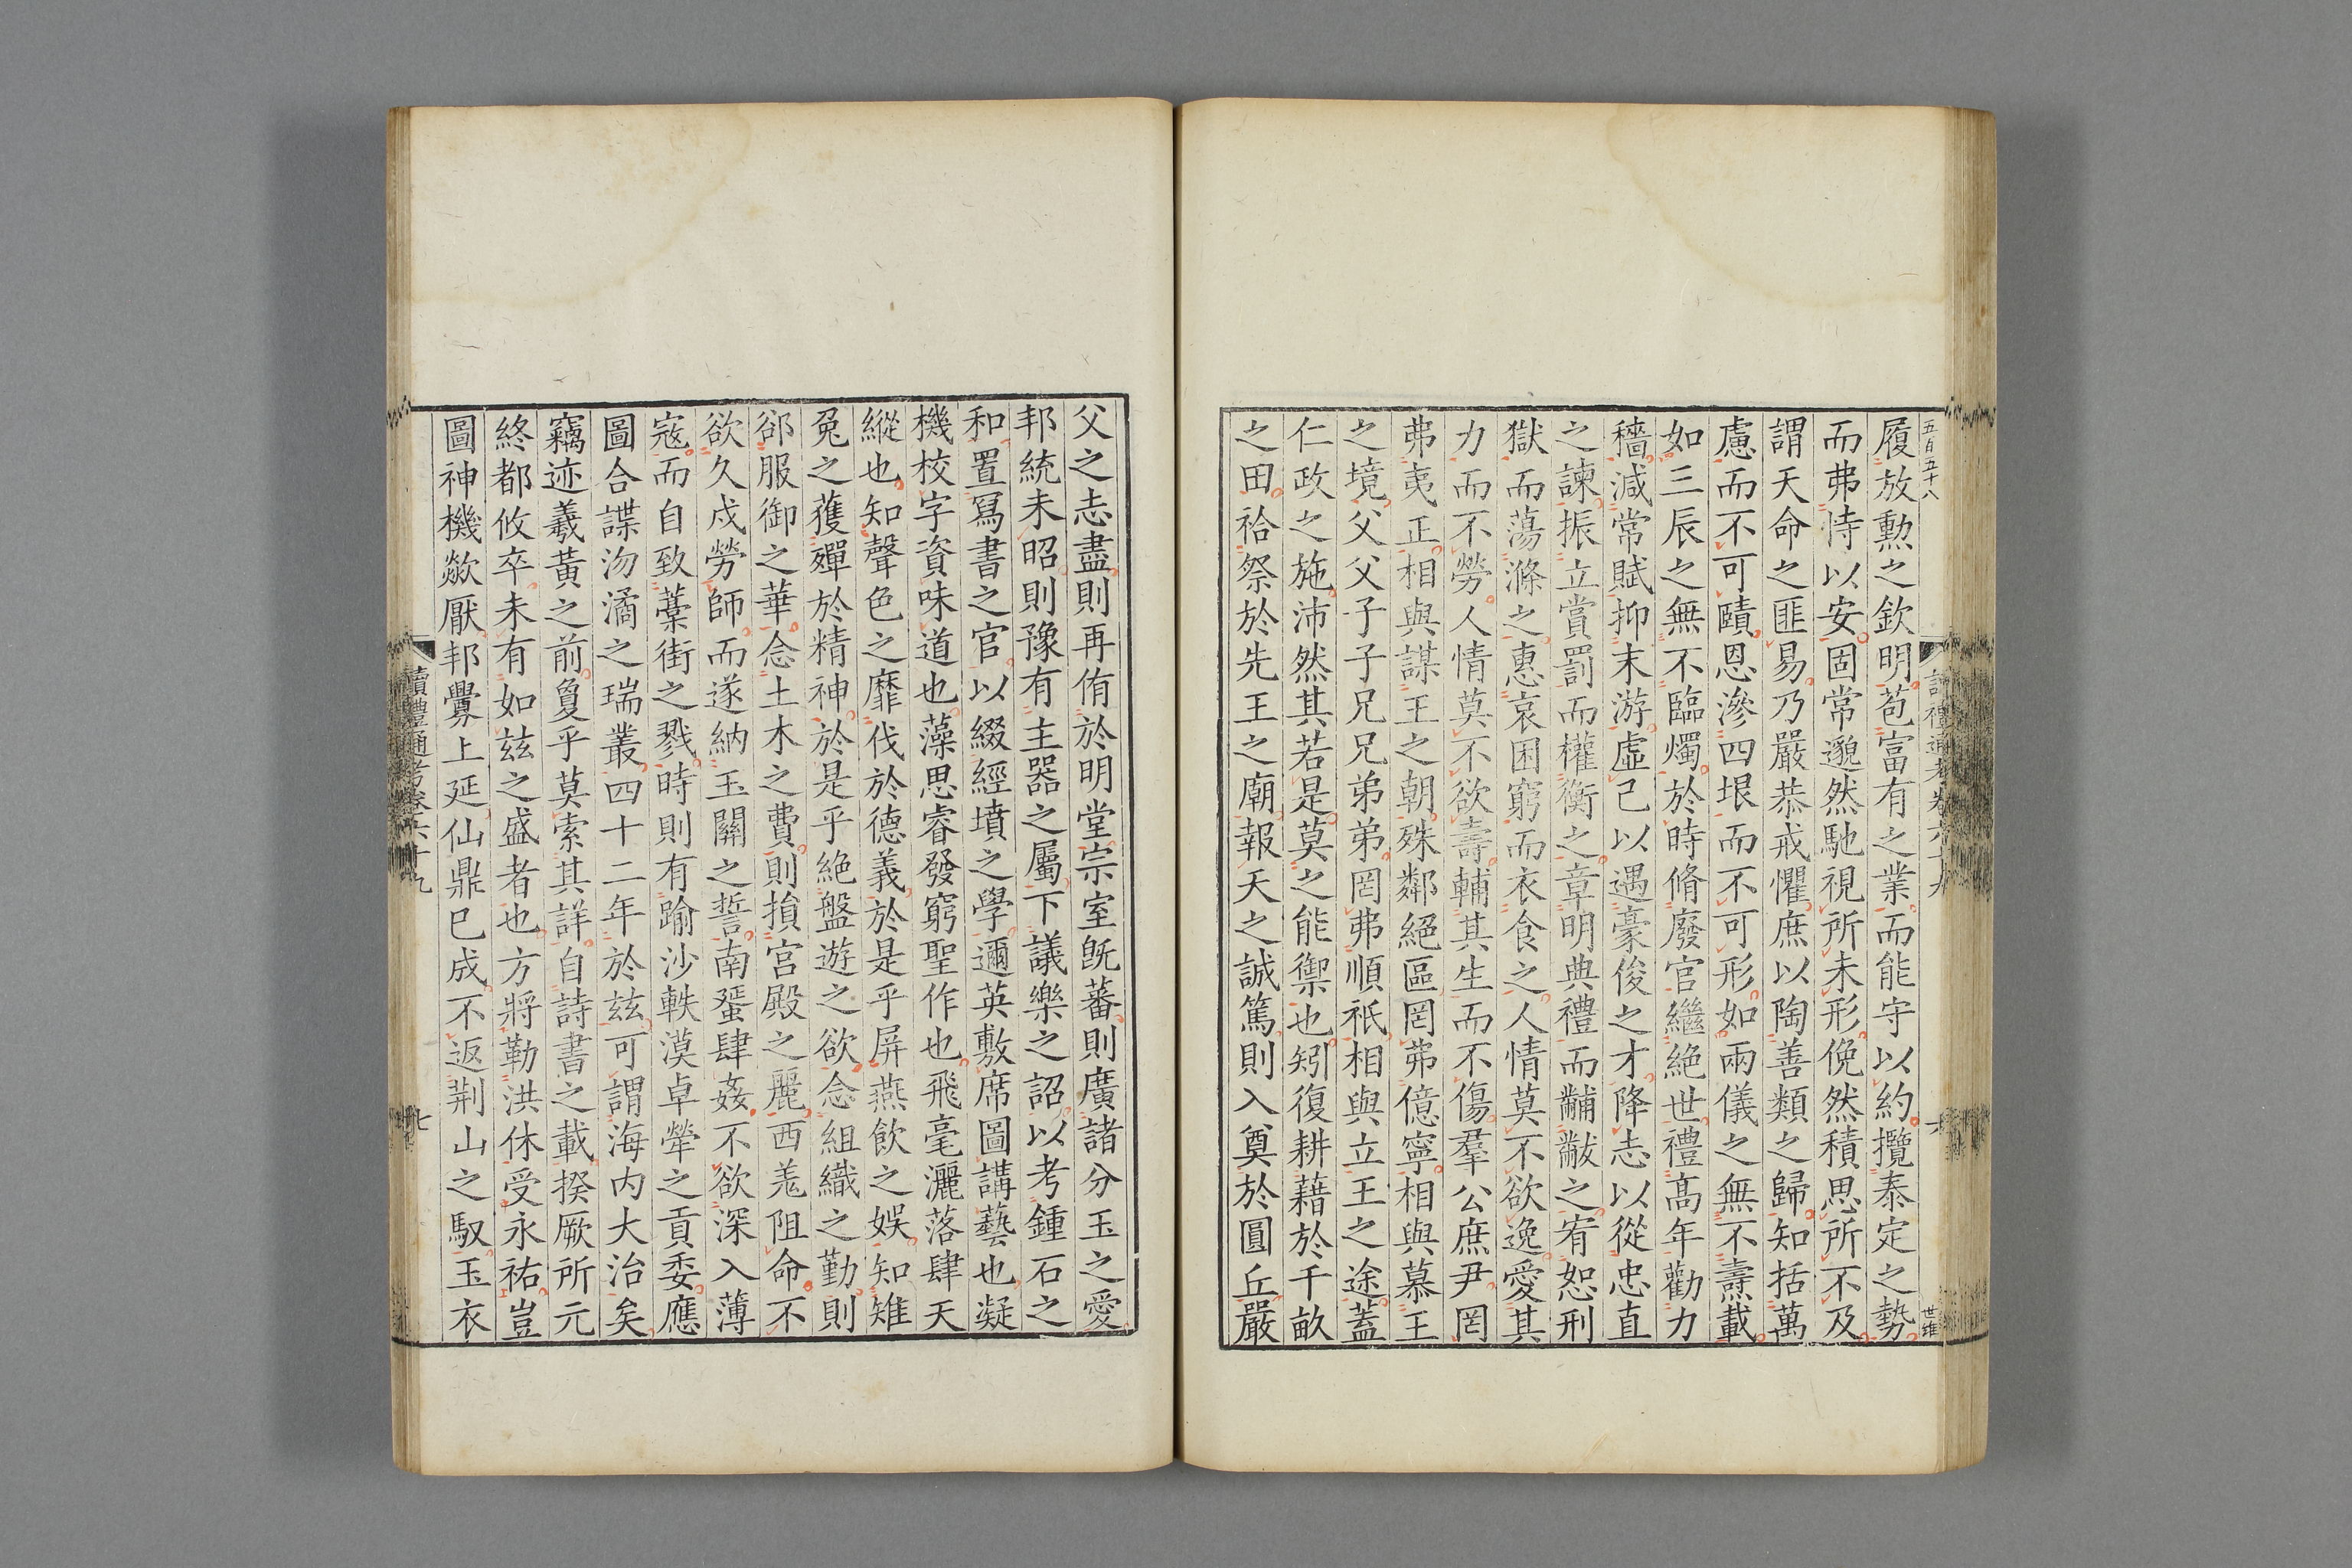 五百五十八
讀禮通考卷六十九
六
世維
履放勲之欽明苞富有之業而能守以約攬泰定之勢
而弗恃以安固常邈然馳視所未形俛然積思所不及
謂天命之匪易乃嚴恭戒懼庶以陶善類之歸知括萬
慮而不可賾恩滲四垠而不可形如兩儀之無不燾載
如三辰之無不臨燭於時脩廢官繼絕世禮高年勸力
穡減常賦抑末游虛己以遇豪俊之才降志以從忠直
之諫振立賞罰而權衡之章明典禮而黼黻之宥恕刑
獄而蕩滌之惠哀困窮而衣食之人情莫不欲逸愛其
力而不勞人情莫不欲壽輔其生而不傷羣公庶尹罔
弗夷正相與謀王之朝殊鄰絕區罔弗億寧相與慕王
之境父父子子兄兄弟弟罔弗順祇相與立王之途蓋
仁政之施沛然其若是莫之能禦也矧復耕藉於千畝
之田祫祭於先王之廟報天之誠篤則入奠於圓丘嚴
父之志盡則再侑於明堂宗室旣蕃則廣諸分玉之愛
邦統未昭則豫有主器之屬下議樂之詔以考鍾石之
和置寫書之官以綴經墳之學邇英敷席圖講藝也凝
機校字資味道也藻思睿發窮聖作也飛毫灑落肆天
縱也知聲色之靡伐於德義於是乎屏燕飲之娛知雉
兔之獲殫於精神於是乎絕盤遊之欲念組織之勤則
郤服御之華念土木之費則損宮殿之麗西羌阻命不
欲久戍勞師而遂納玉關之誓南蜑肆姦不欲深入薄
寇而自致藁街之戮時則有踰沙軼漠卓犖之貢委應
圖合諜沕潏之瑞叢四十二年於兹可謂海内大治矣
竊迹羲黃之前敻乎莫索其詳自詩書之載揆厥所元
終都攸卒未有如兹之盛者也方將勒洪休受永祐豈
圖神機歘厭邦釁上延仙鼎已成不返荆山之馭玉衣
讀禮通考卷六十九
七